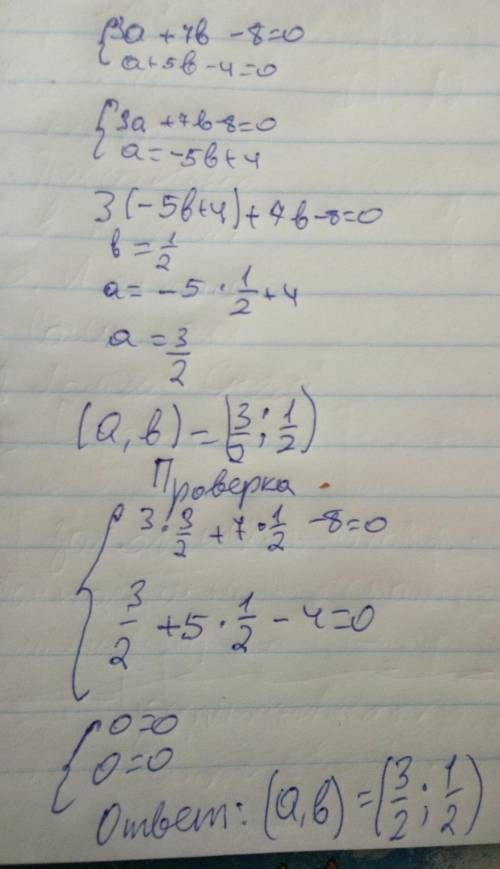 {3a + 7b - 8=0
a+5b-4=0
{3a + 7b-8=0
a=-5b+4
3(-5b+4)+7b-8=0
b=1/2
a=-5·1/2+4
a=3/2
(a,b)=(3/2;1/2)
Проверка
{3·3/2+7·1/2-8=0
3/2+5·1/2-4=0
{0=0
0=0
Ответ: (a,b)=(3/2;1/2)